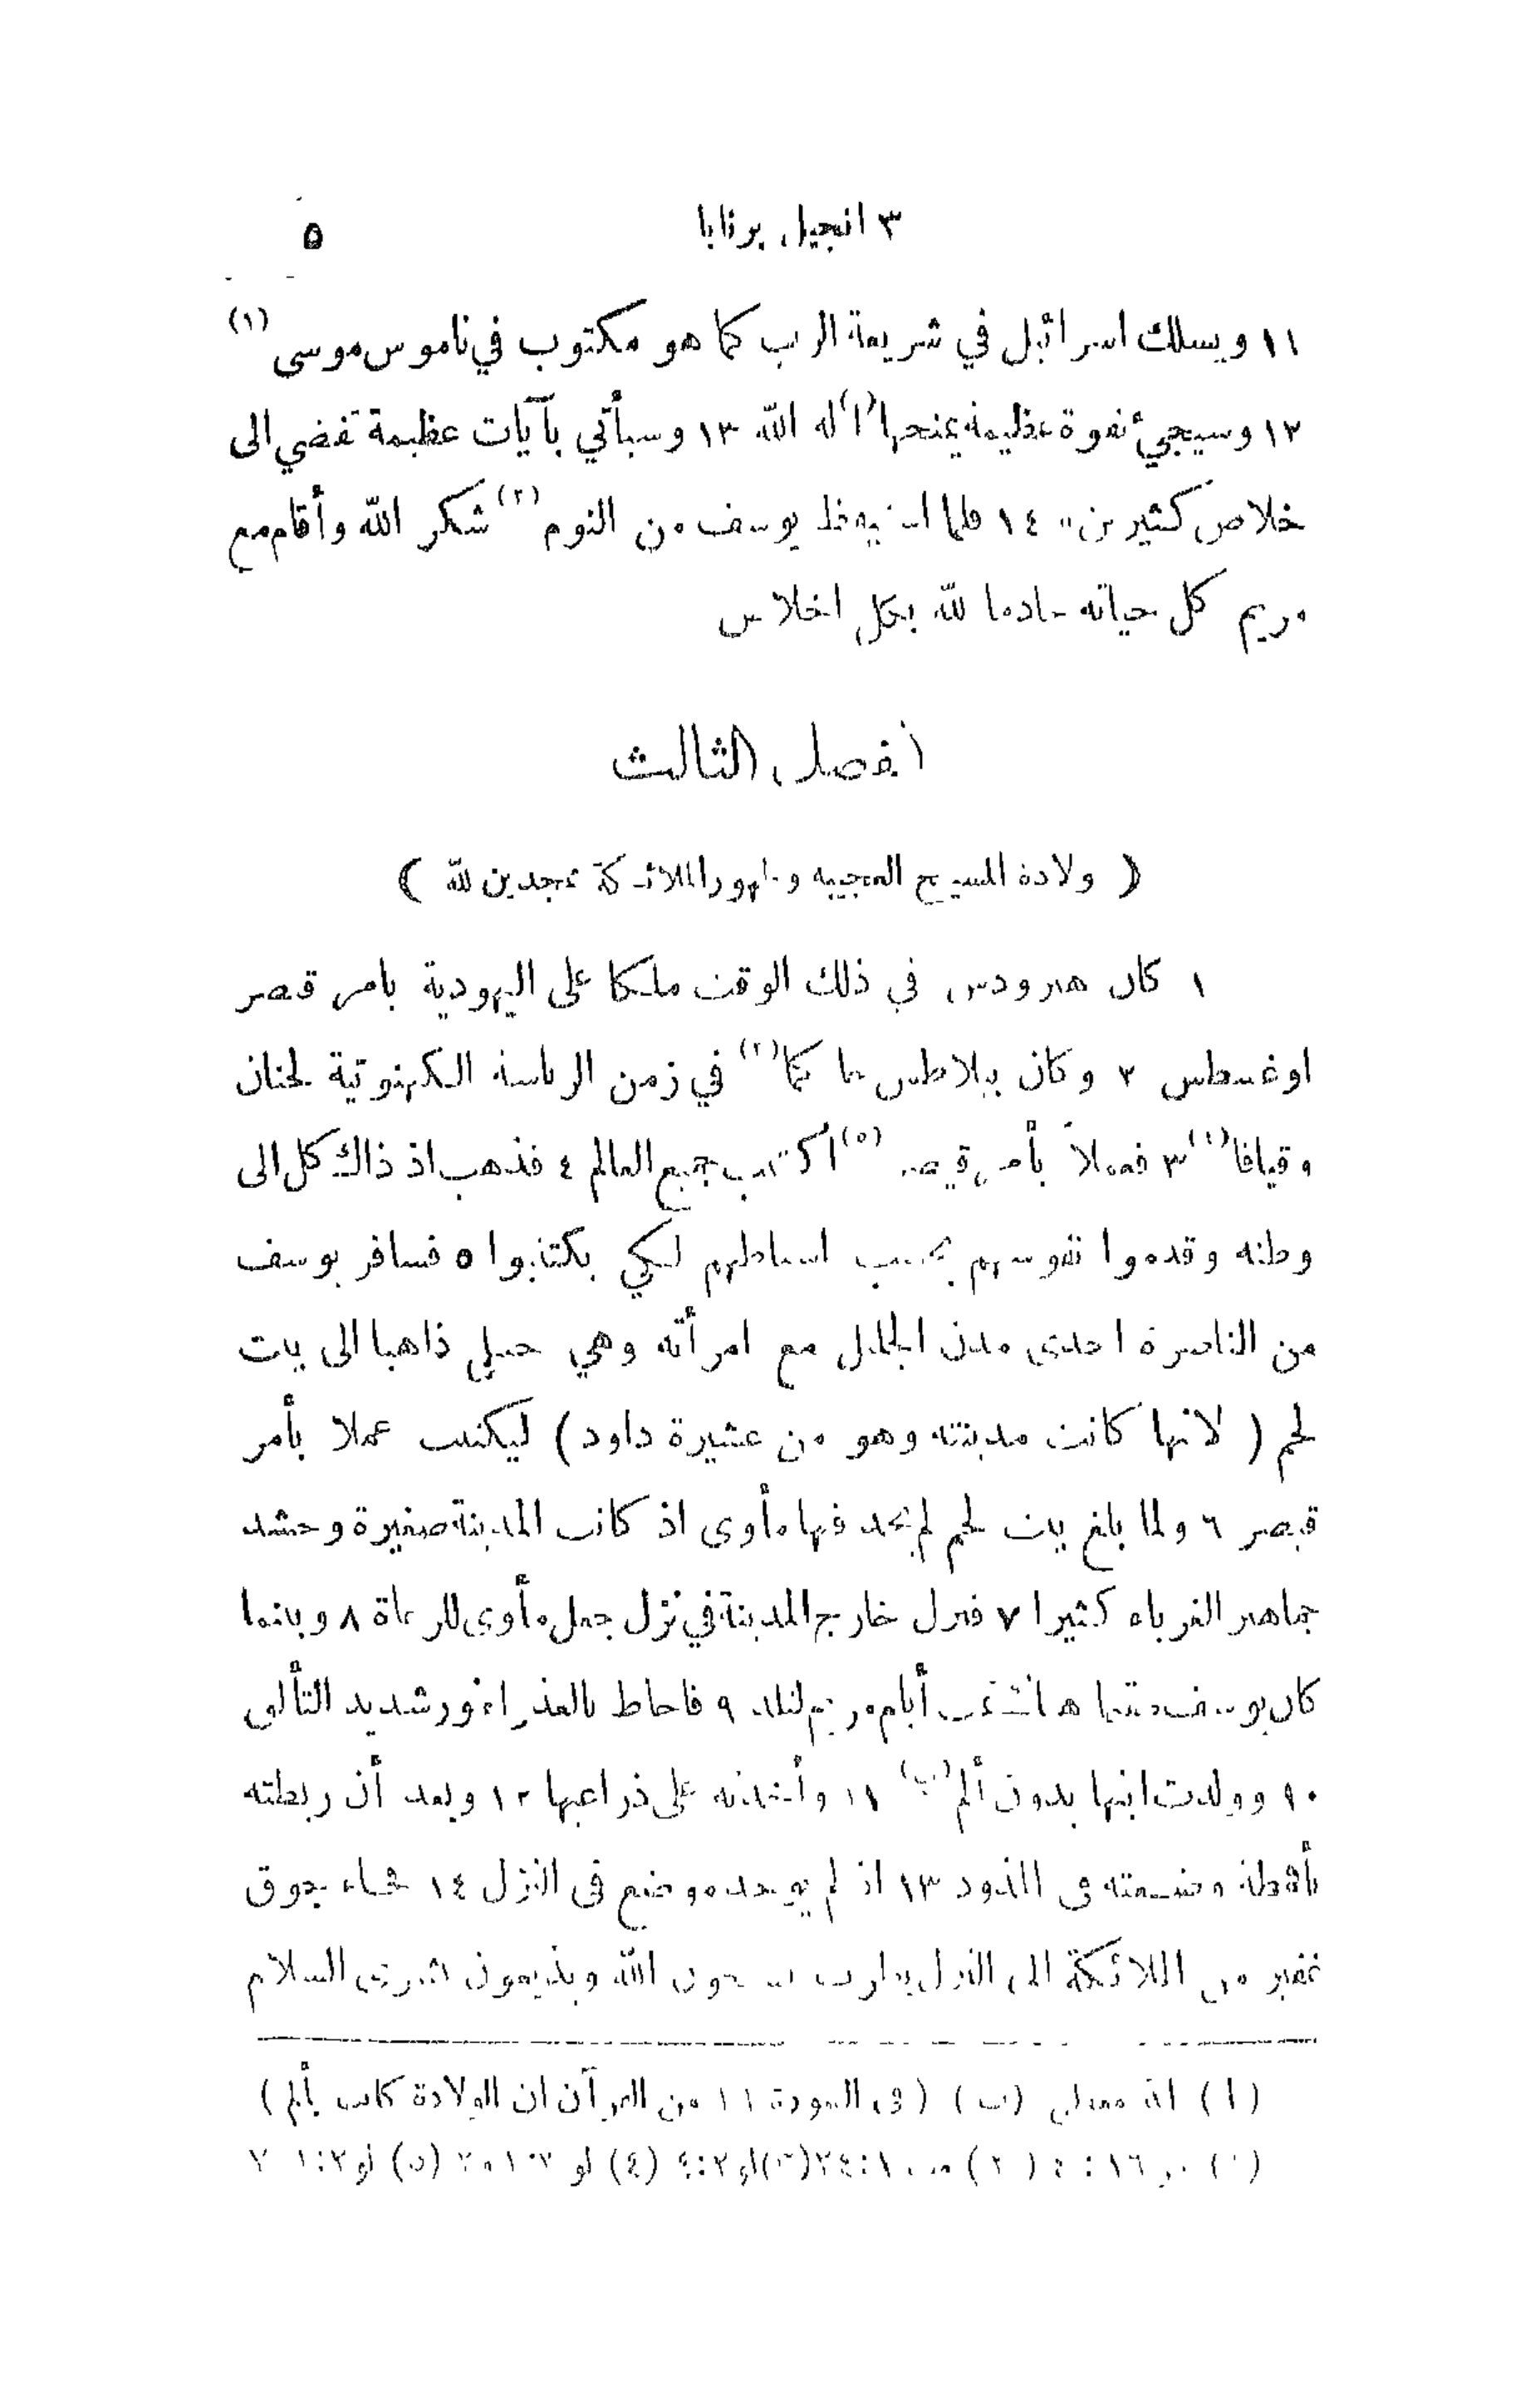 ٣ انجيل برنابا ٥
١١ ويسلك اسرائيل في شريعة الرب كما هو مكتوب في ناموس موسى (١)
١٢ وسيجيء بقوة عظيمة يمنحها (ا) له الله ١٣ وسيأتي بآيات عظيمة تفضي الى
خلاص كثيرين» ١٤ فلما استيقظ يوسف من النوم (٢) شكر الله وأقام مع
مريم كل حياته خادما لله بكل اخلاص
الفصل الثالث
( ولادة المسيح العجيبة وظهور الملائكة ممجدين لله )
١ كان هيرودس في ذلك الوقت ملكا على اليهودية بامر قيصر
اوغسطس ٢ وكان بيلاطس حاكما (٣) في زمن الرياسة الكهنوتية لحنان
وقيافا (٤) ٣ فعملاً بأمر قيصر (٥) أكتتب جميع العالم ٤ فذهب اذ ذاك كل الى
وطنه وقدموا نفوسهم بحسب اسباطهم لكي يكتتبوا ٥ فسافر يوسف
من الناصرة احدى مدن الجليل مع امرأته وهي حبلى ذاهبا الى بيت
لحم ( لانها كانت مدينته وهو من عشيرة داود ) ليكتتب عملا بأمر
قيصر ٦ ولما بلغ بيت لحم لم يجد فيها مأوى اذ كانت المدينة صغيرة وحشد
جماهير الغرباء كثيرا ٧ فنزل خارج المدينة في نزل جعل مأوى للرعاة ٨ وبينما
كان يوسف مقيما هناك تمت أيام مريم لتلد ٩ فاحاط بالعذراء نور شديد التألق
١٠ وولدت ابنها بدون ألم (ب) ١١ وأخذته على ذراعيها ١٢ وبعد أن ربطته
بأقمطة وضعته في المذود ١٣ اذ لم يوجد موضع في النزل ١٤ فجاء جوق
غفير من الملائكة الى النزل بطرب يسبحون الله ويذيعون بشرى السلام
(ا) الله معطي (ب) (في السورة ١١ من القرآن ان الولادة كانت بألم)
(٢) مت ١ : ٢٤ (٣) لو ٣ : (٤) لو (٥) لو ٢ : ١